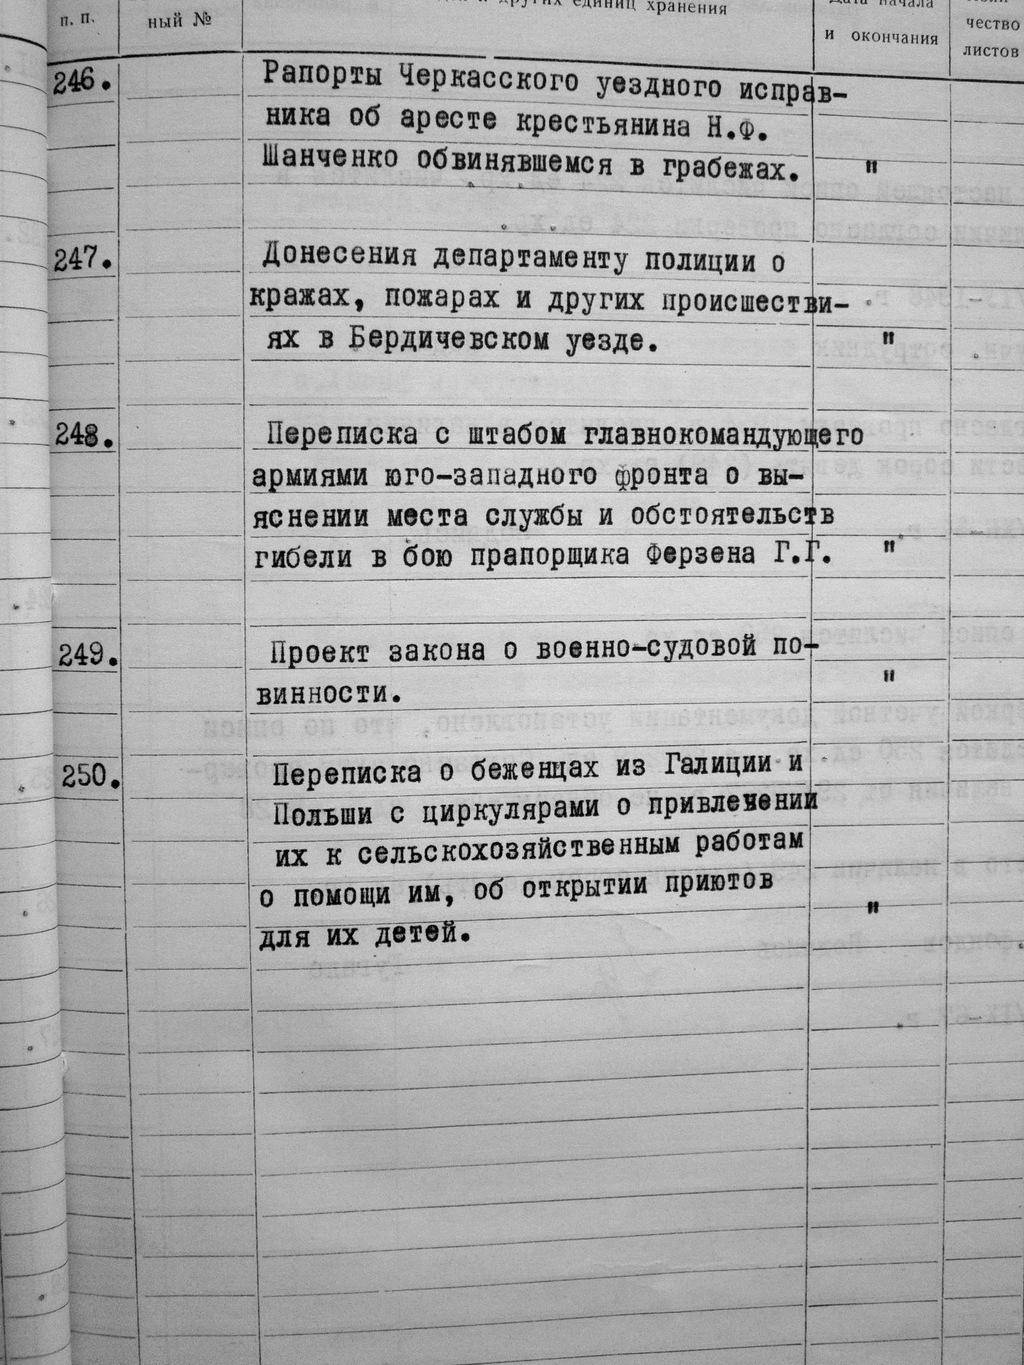 п. п.
ный №
других единиц хранения
Дата начала
и окончания
чество
листов
246. Рапорты Черкасского уездного исправ-
ника об аресте крестьянина Н.Ф.
Шанченко обвинявшемся в грабежах. "
247. Донесения департаменту полиции о
кражах, пожарах и других происшестви-
ях в Бердичевском уезде. "
248. Переписка с штабом главнокомандующего
армиями юго-западного фронта о вы-
яснении места службы и обстоятельств
гибели в бою прапорщика Ферзена Г.Г. "
249. Проект закона о военно-судовой по-
винности. "
250. Переписка о беженцах из Галиции и
Польши с циркулярами о привлечении
их к сельскохозяйственным работам
о помощи им, об открытии приютов
для их детей. "